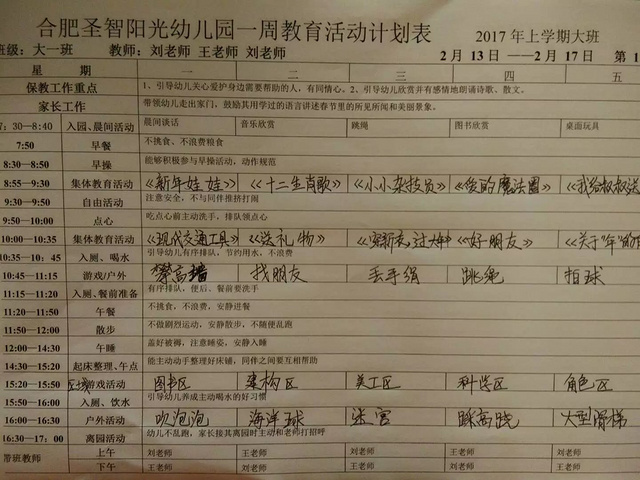 合肥圣智阳光幼儿园一周教育活动计划表 2017年上学期大班
班级：大一班 教师：刘老师 王老师 刘老师 2月13日——2月17日 第1
星期 一 二 三 四 五
保教工作重点 1、引导幼儿关心爱护身边需要帮助的人，有同情心。2、引导幼儿欣赏并有感情地朗诵诗歌、散文。
家长工作 带领幼儿走出家门，鼓励其用学过的语言讲述春节里的所见所闻和美丽景象。
7：30—8:40 入园、晨间活动 晨间谈话 音乐欣赏 跳绳 图书欣赏 桌面玩具
7:50 早餐 不挑食、不浪费粮食
8:30—8:50 早操 能够积极参与早操活动，动作规范
8:55—9:30 集体教育活动 《新年娃娃》 《十二生肖歌》 《小小杂技员》 《爸的魔法圈》 《我给叔叔送
9:30—9:50 自由活动 注意安全，不与同伴推挤打闹
9:50—10:00 点心 吃点心前主动洗手，排队领点心
10:00—10:35 集体教育活动 《现代交通工具》 《送礼物》 《穿新衣，过大年》 《好朋友》 《关于"年"的
10:35—10：45 入厕、喝水 引导幼儿有序排队，节约用水，不浪费
10:45—11:15 游戏/户外 攀高墙 找朋友 丢手绢 跳绳 拍球
11:15—11:20 入厕、餐前准备 有序排队，便后、餐前要洗手
11:20—11:50 午餐 不挑食，不浪费，安静进餐
11:50—12:00 散步 不做剧烈运动，安静散步，不随便乱跑
12:00—14:30 午睡 盖好被褥，注意睡姿，安静入睡
14:30—15:20 起床整理、午点 能主动动手整理好床铺，同伴之间要互相帮助
15:20—15:50 区域游戏活动 图书区 建构区 美工区 科学区 角色区
15:50—16:00 入厕、饮水 引导幼儿养成主动喝水的好习惯
16:00—16:30 户外活动 吹泡泡 海洋球 迷宫 踩高跷 大型滑梯
16:30—17：00 离园活动 幼儿不乱跑，家长接其离园时主动和老师打招呼
带班教师 上午 刘老师 王老师 刘老师 王老师 刘老师
下午 王老师 刘老师 王老师 刘老师 王老师